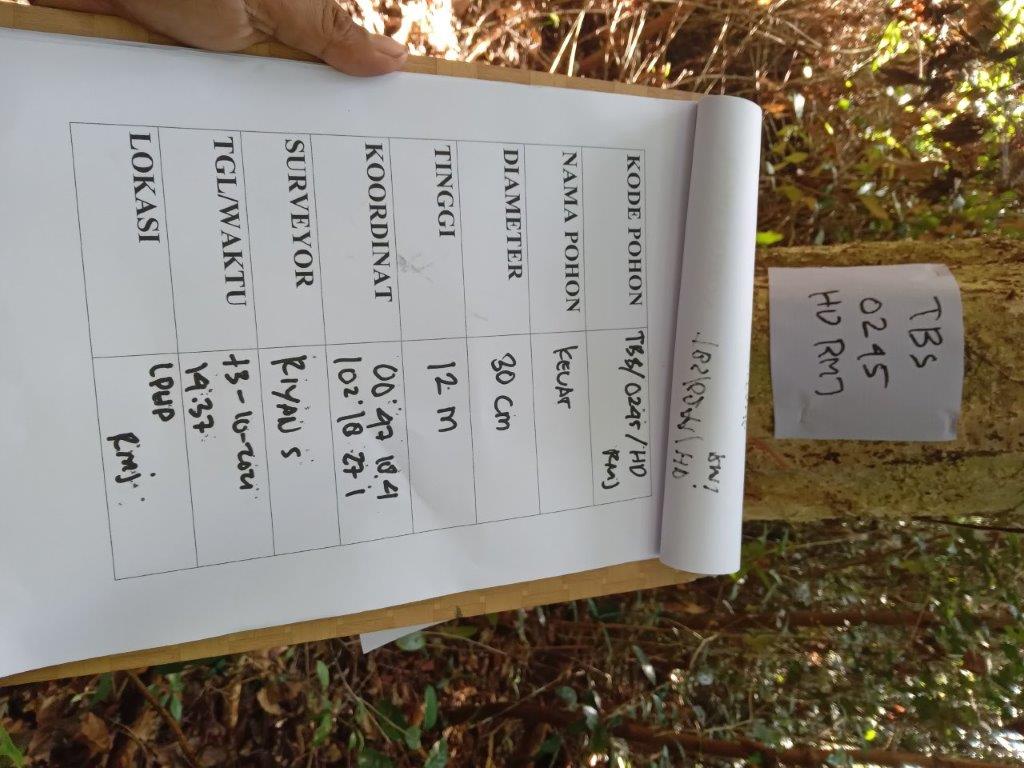 KODE POHON TBS/0245/HD
RMJ
NAMA POHON KELAT
DIAMETER 30 cm
TINGGI 12 m
KOORDINAT 00 47 10.4
102 18 27 1
SURVEYOR RIYAN S
TGL/WAKTU 13-10-2021
14:37
LOKASI LPHD
RMJ
TBS
0245
HD RMJ